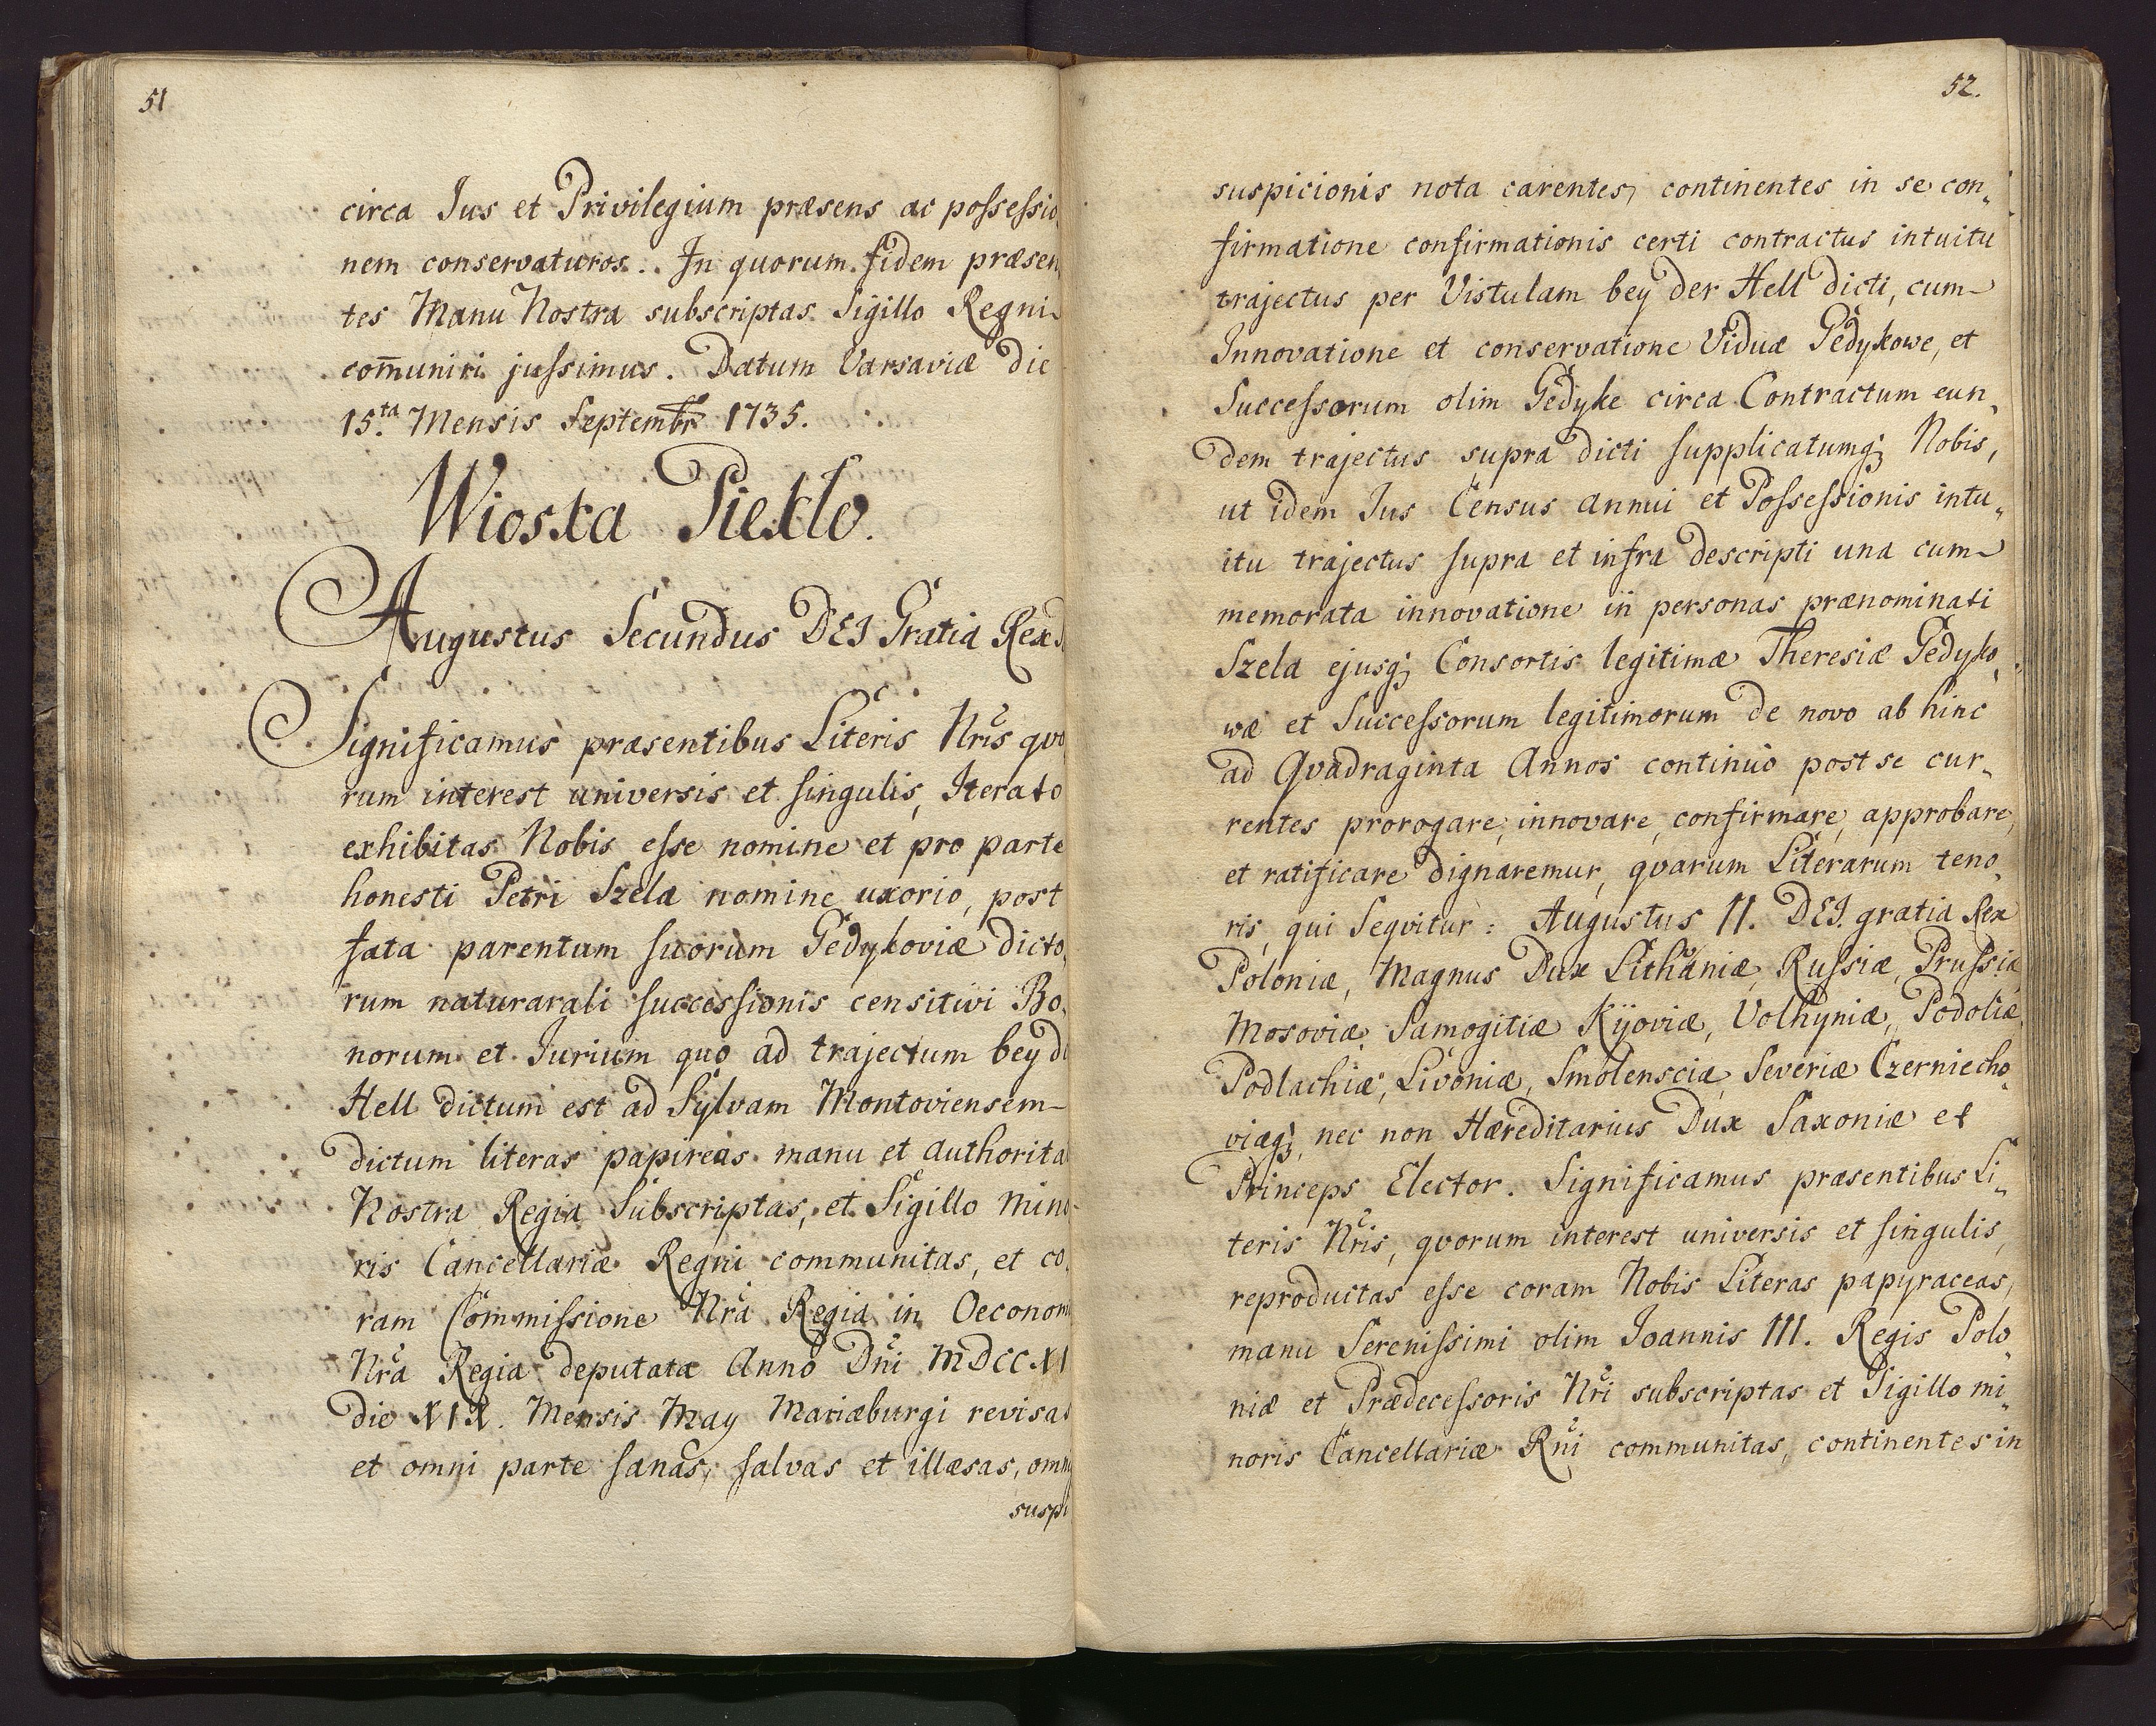 51
circa Jus et Privilegium præsens ac possessio„
nem conservaturos. In quorum fidem præsen„
tes Manu Nostra subscriptas Sigillo Regni
com̄uniri jussimus. Datum Varsaviæ die
15.ta Mensis Septembr 1735.
Wioska Piekło.
Augustus Secundus DEI Gratia Rex
Significamus præsentibus Literis Nris quo
rum interest universis et singulis, Iterato
exhibitas Nobis esse nomine et pro parte
honesti Petri Szela nomine uxorio, post
fata parentum suorum Gedykoviæ dicto„
rum naturarali successionis censitivi Bo„
norum et Jurium quo ad trajectum bey d
Hell dictum est ad Sylvam Montoviensem
dictum literas papireas manu et authorita
Nostra Regia Subscriptas, et Sigillo Mino
ris Cancellariæ Regni communitas, et co„
ram Commissione Nra Regia in Oeconom
Nra Regia deputata Anno Dni MDCCXI
die XIX. Mensis May Mariæburgi revisas
et omni parte sanas, salvas et illæsas, omni
suspi
52.
suspicionis nota carentes, continentes in se con„
firmatione confirmationis certi contractus intuitu
trajectus per Vistulam bey der Hell dicti, cum
Innovatione et conservatione Viduæ Gedykowe, et
Successorum olim Gedyke circa Contractum eun„
dem trajectus supra dicti supplicatumq; Nobis,
ut idem Jus Census annui et Possessionis intu„
itu trajectus supra et infra descripti una cum
memorata innovatione in personas prænominati
Szela ejusq; Consortis legitimæ Theresiæ Gedyko„
wæ et Successorum legitimorum de novo ab hinc
ad Qvadraginta Annos continuò post se cur„
rentes prorogare, innovare, confirmare, approbare,
et ratificare dignaremur, qvarum Literarum teno„
ris, qui seqvitur: Augustus II. DEI. gratia Rex
Poloniæ, Magnus Dux Lithvaniæ, Russiæ, Prussiæ
Mosoviæ, Samogitiæ Kijoviæ, Volhyniæ, Podoliæ
Podlachiæ, Livoniæ, Smolensciæ, Severiæ Czerniecho„
viæq;, nec non Hæreditarius Dux Saxoniæ et
Princeps Elector. Significamus præsentibus Li„
teris Nris, qvorum interest universis et singulis,
reproductas esse coram Nobis Literas papyraceas,
manu Serenissimi olim Joannis III. Regis Polo„
niæ et Prædecessoris Nri subscriptas et Sigillo mi„
noris Cancellariæ Rni communitas, continentes in